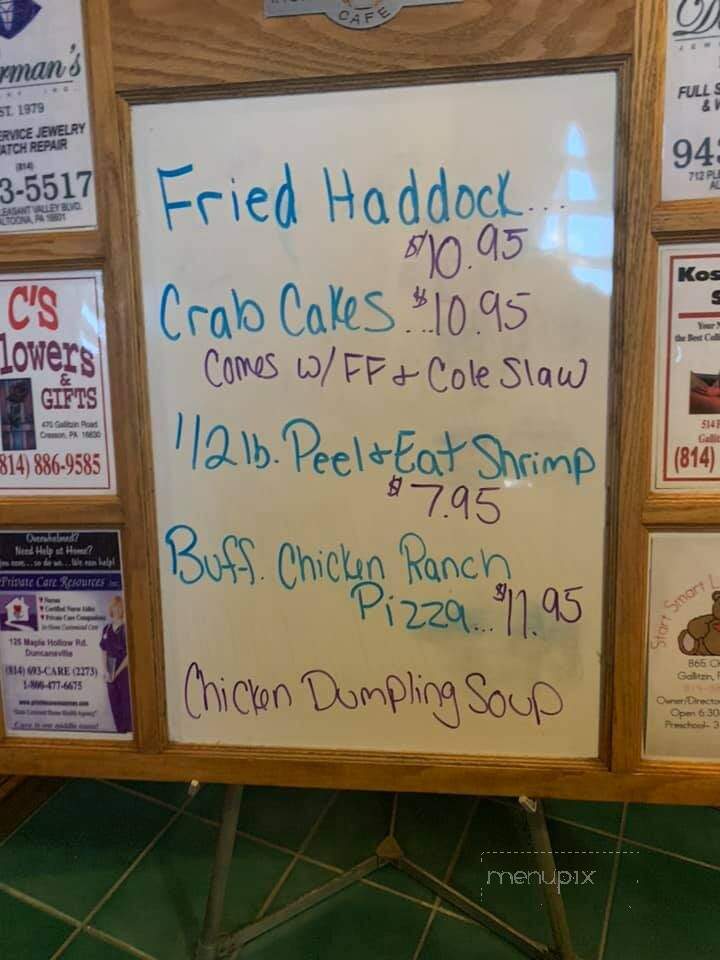 CAFE
Fried Haddock...
$10.95
Crab Cakes...$10.95
Comes w/ FF & Cole Slaw
1/2 lb. Peel & Eat Shrimp
$7.95
Buff. Chicken Ranch
Pizza...$11.95
Chicken Dumpling Soup
rman's
EST. 1979
SERVICE JEWELRY
WATCH REPAIR
(814)
3-5517
PLEASANT VALLEY BLVD.
ALTOONA, PA 16601
C'S
lowers
&
GIFTS
470 Gallitzin Road
Cresson, PA 16630
814) 886-9585
Overwhelmed?
Need Help at Home?
Private Care Resources Inc.
Nurses
Certified Nurse Aides
Private Care Companions
125 Maple Hollow Rd.
Duncansville
(814) 693-CARE (2273)
1-800-477-6675
FULL S
&
943
712 PL
Kos
S
Your
the Best
514
Galli
(814)
Start Smart L
865
Gallitzin,
Owner/Director
Open 6:30
Preschool- 3
menupix